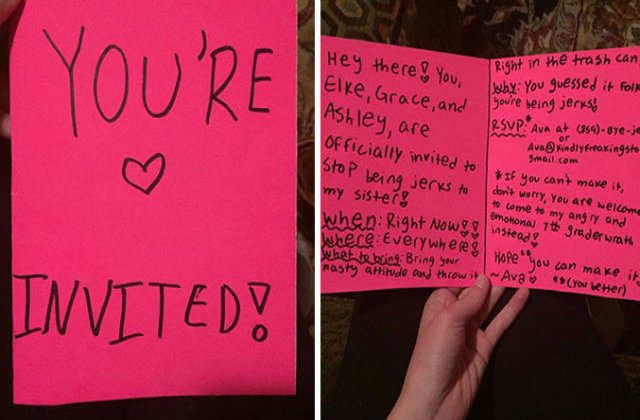 YOU'RE
INVITED!
Hey there! You,
Elke, Grace, and
Ashley, are
officially invited to
stop being jerks to
my sister!
When: Right Now!!
Where: Everywhere!
What to bring: Bring your
nasty attitude and throw it
Right in the trash can
Why: You guessed it folk
you're being jerks!
RSVP:* Ava at (859)-Bye-je
or
Ava@Kindlyfreakingsto
gmail.com
*If you can't make it,
don't worry, you are welcom
to come to my angry and
emotional 7th grader wrath
instead!
Hope**you can make it
~Ava **(You better)